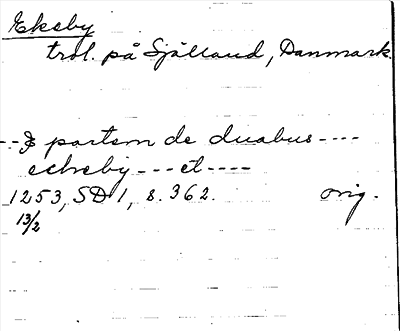 Ekeby
trol. på Själland, Danmark.
--& partem de duabus ----
echeby --- et ----
1253, SD 1, s. 362. orig.
13/2